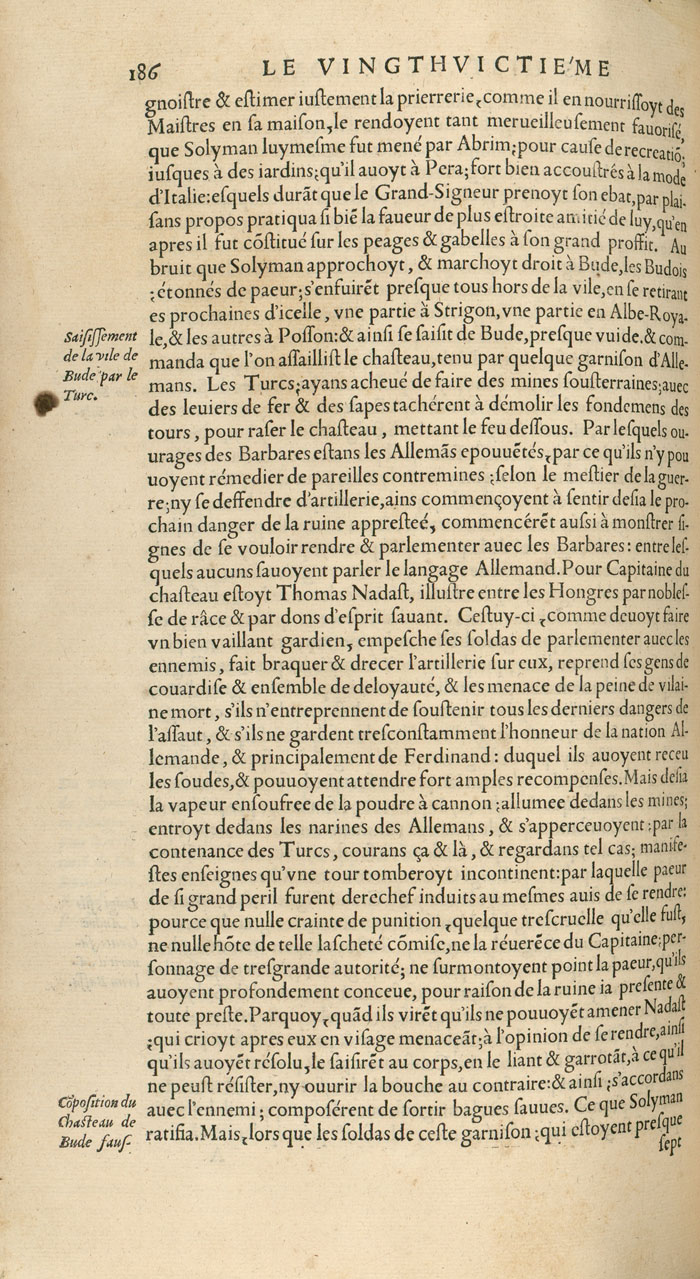 186 LE VINGTHVICTIE'ME
gnoiſtre & eſtimer iuſtement la prierrerie, comme il en nourriſſoyt des
Maiſtres en ſa maiſon, le rendoyent tant merueilleuſement fauoriſé,
que Solyman luymeſme fut mené par Abrim; pour cauſe de recreatiõ;
iuſques à des iardins; qu'il auoyt à Pera; fort bien accouſtrés à la mode
d'Italie: eſquels durãt que le Grand-Signeur prenoyt ſon ebat, par plai-
ſans propos pratiqua ſi biẽ la faueur de plus eſtroite amitié de luy, qu'en
apres il fut cõſtitué ſur les peages & gabelles à ſon grand proffit. Au
bruit que Solyman approchoyt, & marchoyt droit à Bude, les Budois
;étonnés de paeur; s'enfuirẽt preſque tous hors de la vile, en ſe retirant
es prochaines d'icelle, vne partie à Strigon, vne partie en Albe-Roya-
le, & les autres à Poſſon: & ainſi ſe ſaiſit de Bude, preſque vuide. & com-
manda que l'on aſſailliſt le chaſteau, tenu par quelque garniſon d'Alle-
mans. Les Turcs; ayans acheué de faire des mines ſouſterraines; auec
des leuiers de fer & des ſapes tachérent à démolir les fondemens des
tours, pour raſer le chaſteau, mettant le feu deſſous. Par leſquels ou-
urages des Barbares eſtans les Allemãs epouuẽtés, par ce qu'ils n'y pou
uoyent rémedier de pareilles contremines ; ſelon le meſtier de la guer-
re; ny ſe deffendre d'artillerie, ains commençoyent à ſentir deſia le pro-
chain danger de la ruine appreſteé, commencérẽt auſsi à monſtrer ſi-
gnes de ſe vouloir rendre & parlementer auec les Barbares: entre leſ-
quels aucuns ſauoyent parler le langage Allemand. Pour Capitaine du
chaſteau eſtoyt Thomas Nadaſt, illuſtre entre les Hongres par nobleſ-
ſe de râce & par dons d'eſprit ſauant. Ceſtuy-ci, comme deuoyt faire
vn bien vaillant gardien, empeſche ſes ſoldas de parlementer auec les
ennemis, fait braquer & drecer l'artillerie ſur eux, reprend ſes gens de
couardiſe & enſemble de deloyauté, & les menace de la peine de vilai-
ne mort, s'ils n'entreprennent de ſouſtenir tous les derniers dangers de
l'aſſaut, & s'ils ne gardent treſconſtamment l'honneur de la nation Al-
lemande, & principalement de Ferdinand: duquel ils auoyent receu
les ſoudes, & pouuoyent attendre fort amples recompenſes. Mais deſia
la vapeur enſoufree de la poudre à cannon ; allumee dedans les mines;
entroyt dedans les narines des Allemans, & s'apperceuoyent ; par la
contenance des Turcs, courans ça & là, & regardans tel cas; manife-
ſtes enſeignes qu'vne tour tomberoyt incontinent: par laquelle paeur
de ſi grand peril furent derechef induits au meſmes auis de ſe rendre:
pource que nulle crainte de punition, quelque treſcruelle qu'elle fuſt,
ne nulle hõte de telle laſcheté cõmiſe, ne la réuerẽce du Capitaine; per-
ſonnage de treſgrande autorité; ne ſurmontoyent point la paeur, qu'ils
auoyent profondement conceue, pour raiſon de la ruine ia preſente &
toute preſte. Parquoy, quãd ils virẽt qu'ils ne pouuoyẽt amener Nadaſt
;qui crioyt apres eux en viſage menaceãt; à l'opinion de ſe rendre, ainſi
qu'ils auoyẽt réſolu, le ſaiſirẽt au corps, en le liant & garrotãt, à ce qu'il
ne peuſt réſiſter, ny ouurir la bouche au contraire: & ainſi ; s'accordans
auec l'ennemi ; compoſérent de ſortir bagues ſauues. Ce que Solyman
ratifia. Mais, lors que les ſoldas de ceſte garniſon ; qui eſtoyent preſque
ſept
Saiſiſſement
de la vile de
Bude par le
Turc.
Cõpoſition du
Chaſteau de
Bude ſauſ-